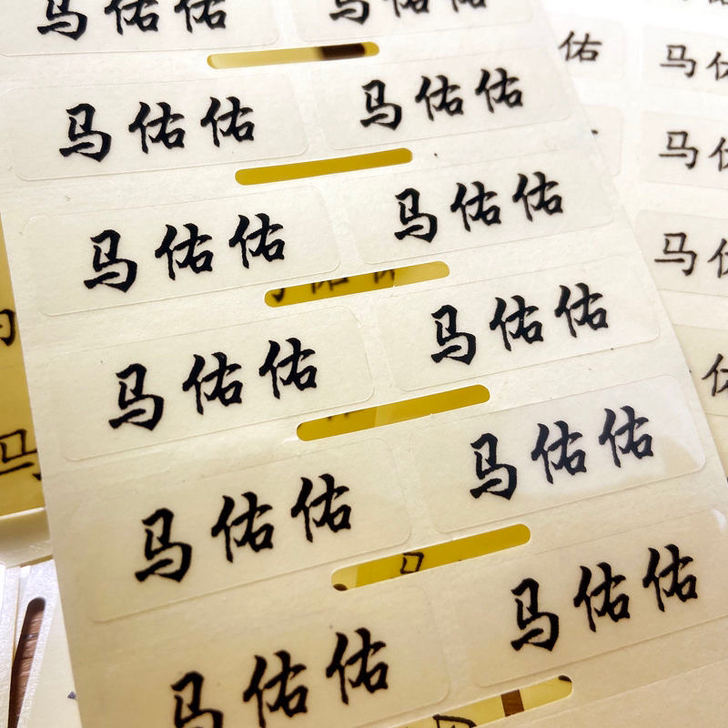 马佑佑 马佑佑
马佑佑 马佑佑
马佑佑 马佑佑
马佑佑 马佑佑
马佑佑 马佑佑
马佑佑 马佑佑
佑
马
马
马